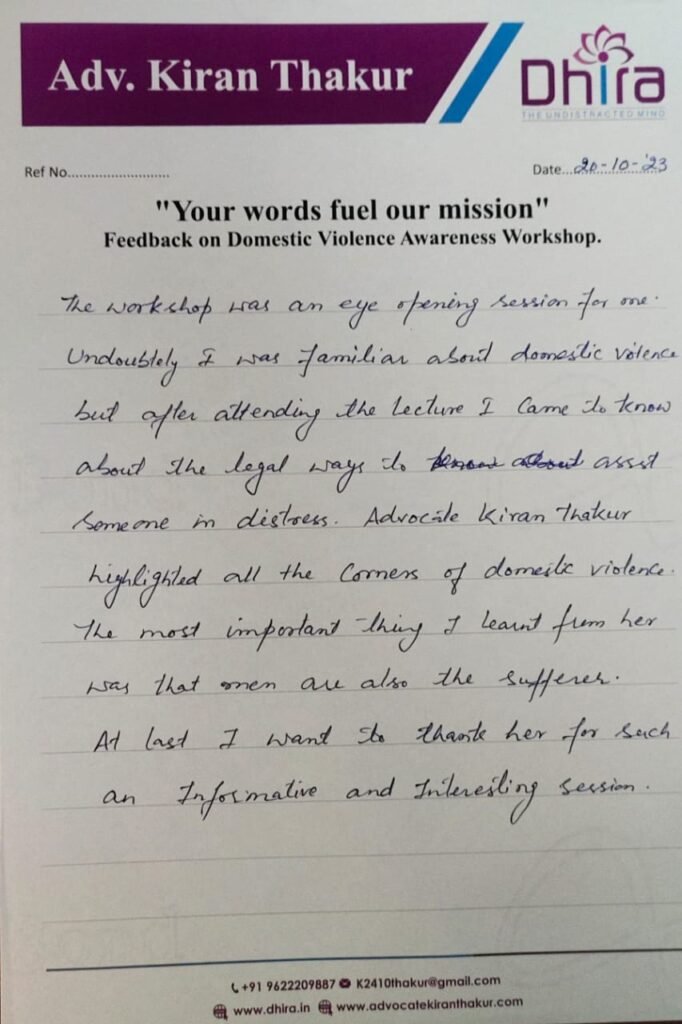 Adv. Kiran Thakur
Dhira
THE UNDISTRACTED MIND
Ref No..........................
Date...20-10-'23
"Your words fuel our mission"
Feedback on Domestic Violence Awareness Workshop.
The workshop was an eye opening session for me.
Undoubtely I was familiar about domestic violence
but after attending the lecture I came to know
about the legal ways to know about assist
someone in distress. Advocate Kiran Thakur
highlighted all the corners of domestic violence.
The most important thing I learnt from her
was that men are also the sufferer.
At last I want to thank her for such
an Informative and Interesting session.
+91 9622209887 K2410thakur@gmail.com
www.dhira.in www.advocatekiranthakur.com